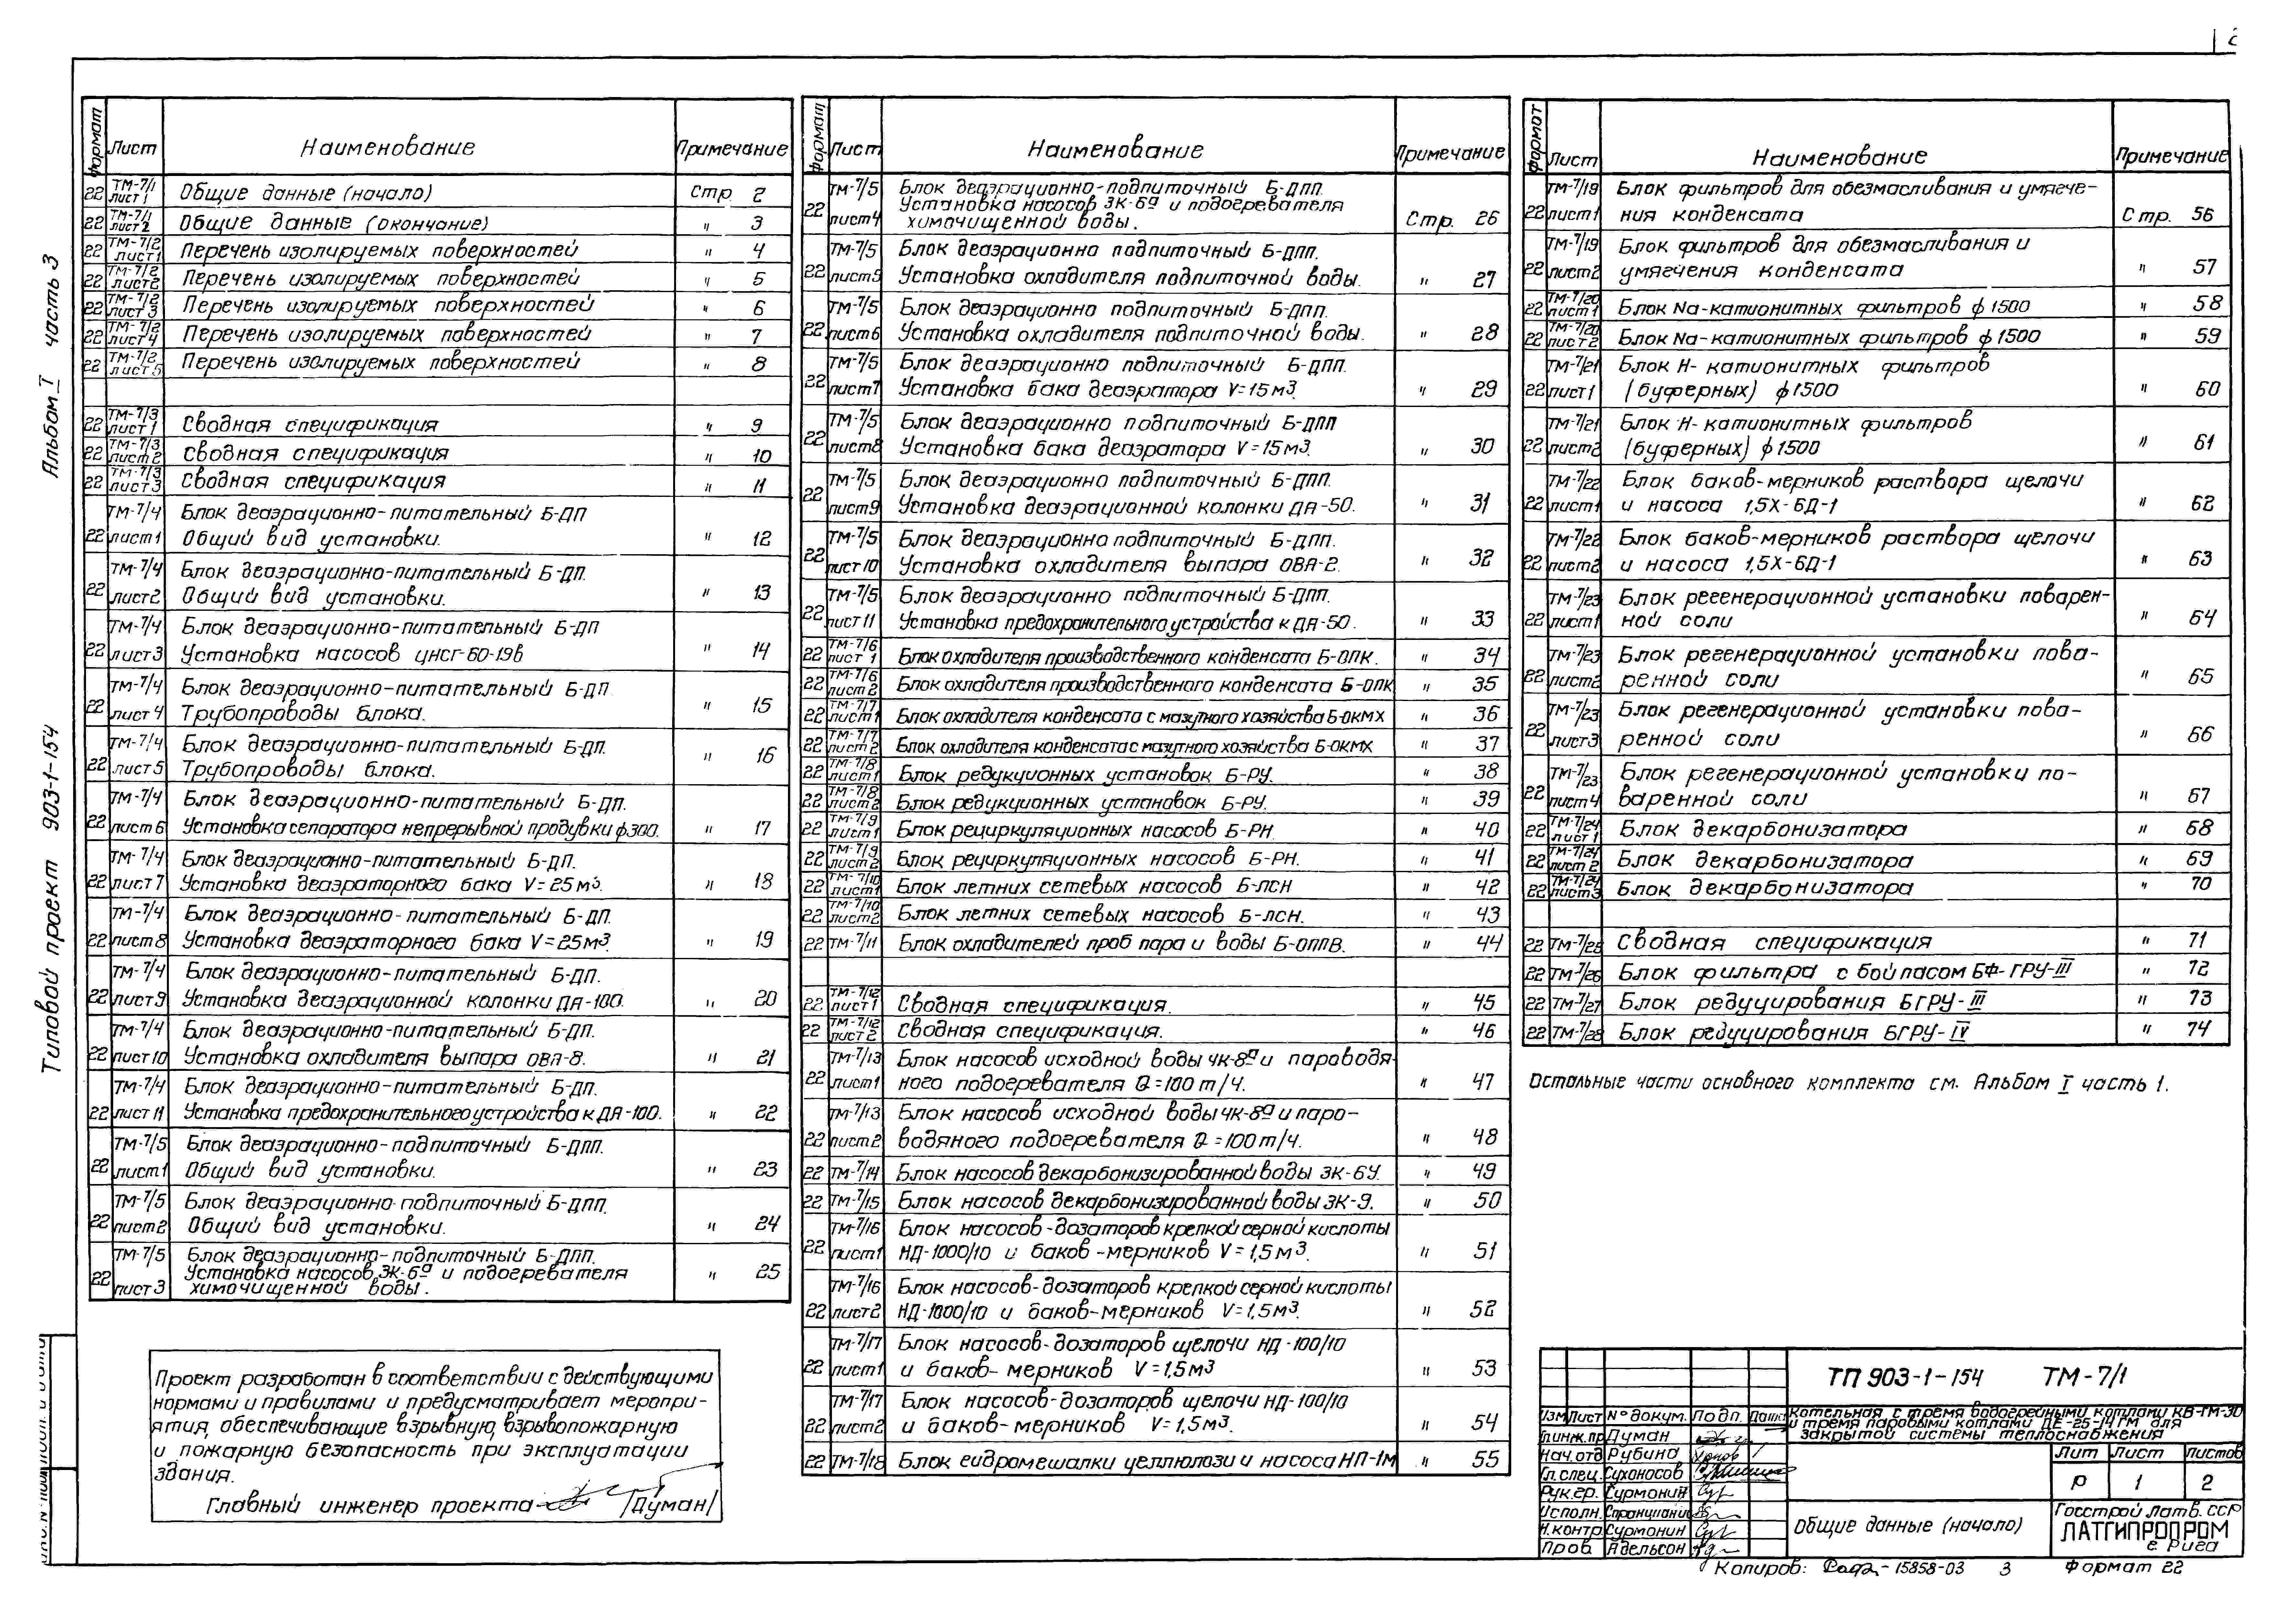 Типовой проект 903-1-154 Альбом I часть 3
Формат Лист Наименование Примечание
22 ТМ-7/1 лист 1 Общие данные (начало) Стр. 2
22 ТМ-7/1 лист 2 Общие данные (окончание) " 3
22 ТМ-7/2 лист 1 Перечень изолируемых поверхностей " 4
22 ТМ-7/2 лист 2 Перечень изолируемых поверхностей " 5
22 ТМ-7/2 лист 3 Перечень изолируемых поверхностей " 6
22 ТМ-7/2 лист 4 Перечень изолируемых поверхностей " 7
22 ТМ-7/2 лист 5 Перечень изолируемых поверхностей " 8
22 ТМ-7/3 лист 1 Сводная спецификация " 9
22 ТМ-7/3 лист 2 Сводная спецификация " 10
22 ТМ-7/3 лист 3 Сводная спецификация " 11
ТМ-7/4 Блок деаэрационно-питательный Б-ДП
22 лист 1 Общий вид установки. " 12
ТМ-7/4 Блок деаэрационно-питательный Б-ДП.
22 лист 2 Общий вид установки. " 13
ТМ-7/4 Блок деаэрационно-питательный Б-ДП
22 лист 3 Установка насосов ЦНСГ-60-198 " 14
ТМ-7/4 Блок деаэрационно-питательный Б-ДП
22 лист 4 Трубопроводы блока. " 15
ТМ-7/4 Блок деаэрационно-питательный Б-ДП.
22 лист 5 Трубопроводы блока. " 16
ТМ-7/4 Блок деаэрационно-питательный Б-ДП.
22 лист 6 Установка сепаратора непрерывной продувки ф300. " 17
ТМ-7/4 Блок деаэрационно-питательный Б-ДП.
22 лист 7 Установка деаэраторного бака V=25м3. " 18
ТМ-7/4 Блок деаэрационно-питательный Б-ДП.
22 лист 8 Установка деаэраторного бака V=25м3. " 19
ТМ-7/4 Блок деаэрационно-питательный Б-ДП.
22 лист 9 Установка деаэрационной колонки ДА-100. " 20
ТМ-7/4 Блок деаэрационно-питательный Б-ДП.
22 лист 10 Установка охладителя выпара ОВА-8. " 21
ТМ-7/4 Блок деаэрационно-питательный Б-ДП.
22 лист 11 Установка предохранительного устройства к ДА-100. " 22
ТМ-7/5 Блок деаэрационно-подпиточный Б-ДПП.
22 лист 1 Общий вид установки. " 23
ТМ-7/5 Блок деаэрационно-подпиточный Б-ДПП.
22 лист 2 Общий вид установки. " 24
ТМ-7/5 Блок деаэрационно-подпиточный Б-ДПП.
22 Установка насосов 3К-6а и подогревателя " 25
лист 3 химочищенной воды.
Проект разработан в соответствии с действующими
нормами и правилами и предусматривает меропри-
ятия, обеспечивающие взрывную, взрывопожарную
и пожарную безопасность при эксплуатации
здания.
Главный инженер проекта /Думан/
Формат Лист Наименование Примечание
ТМ-7/5 Блок деаэрационно-подпиточный Б-ДПП.
22 Установка насосов 3К-6а и подогревателя
лист 4 химочищенной воды. Стр. 26
ТМ-7/5 Блок деаэрационно подпиточный Б-ДПП.
22 лист 5 Установка охладителя подпиточной воды. " 27
ТМ-7/5 Блок деаэрационно подпиточный Б-ДПП.
22 лист 6 Установка охладителя подпиточной воды. " 28
ТМ-7/5 Блок деаэрационно подпиточный Б-ДПП.
22 лист 7 Установка бака деаэратора V=15м3. " 29
ТМ-7/5 Блок деаэрационно подпиточный Б-ДПП
22 лист 8 Установка бака деаэратора V=15м3. " 30
ТМ-7/5 Блок деаэрационно подпиточный Б-ДПП.
22 лист 9 Установка деаэрационной колонки ДА-50. " 31
ТМ-7/5 Блок деаэрационно подпиточный Б-ДПП.
22 лист 10 Установка охладителя выпара ОВА-2. " 32
ТМ-7/5 Блок деаэрационно подпиточный Б-ДПП.
22 лист 11 Установка предохранительного устройства к ДА-50. " 33
22 ТМ-7/6 лист 1 Блок охладителя производственного конденсата Б-ОПК. " 34
22 ТМ-7/6 лист 2 Блок охладителя производственного конденсата Б-ОПК " 35
22 ТМ-7/7 лист 1 Блок охладителя конденсата с мазутного хозяйства Б-ОКМХ " 36
22 ТМ-7/7 лист 2 Блок охладителя конденсата с мазутного хозяйства Б-ОКМХ " 37
22 ТМ-7/8 лист 1 Блок редукционных установок Б-РУ. " 38
22 ТМ-7/8 лист 2 Блок редукционных установок Б-РУ. " 39
22 ТМ-7/9 лист 1 Блок рециркуляционных насосов Б-РН. " 40
22 ТМ-7/9 лист 2 Блок рециркуляционных насосов Б-РН. " 41
22 ТМ-7/10 лист 1 Блок летних сетевых насосов Б-ЛСН " 42
22 ТМ-7/10 лист 2 Блок летних сетевых насосов Б-ЛСН. " 43
22 ТМ-7/11 Блок охладителей проб пара и воды Б-ОППВ. " 44
22 ТМ-7/12 лист 1 Сводная спецификация. " 45
22 ТМ-7/12 лист 2 Сводная спецификация. " 46
ТМ-7/13 Блок насосов исходной воды 4К-8а и пароводя-
22 лист 1 ного подогревателя Q=100 т/ч. " 47
ТМ-7/13 Блок насосов исходной воды 4К-8а и паро-
22 лист 2 водяного подогревателя Q=100 т/ч. " 48
22 ТМ-7/14 Блок насосов декарбонизированной воды 3К-6У. " 49
22 ТМ-7/15 Блок насосов декарбонизированной воды 3К-9. " 50
ТМ-7/16 Блок насосов-дозаторов крепкой серной кислоты
22 лист 1 НД-1000/10 и баков-мерников V=1,5м3. " 51
ТМ-7/16 Блок насосов-дозаторов крепкой серной кислоты
22 лист 2 НД-1000/10 и баков-мерников V=1,5м3. " 52
ТМ-7/17 Блок насосов-дозаторов щелочи НД-100/10
22 лист 1 и баков-мерников V=1,5м3 " 53
ТМ-7/17 Блок насосов-дозаторов щелочи НД-100/10
22 лист 2 и баков-мерников V=1,5м3. " 54
22 ТМ-7/18 Блок гидромешалки целлюлозы и насоса НП-1М " 55
Формат Лист Наименование Примечание
ТМ-7/19 Блок фильтров для обезмасливания и умягче-
22 лист 1 ния конденсата Стр. 56
ТМ-7/19 Блок фильтров для обезмасливания и
22 лист 2 умягчения конденсата " 57
22 ТМ-7/20 лист 1 Блок Na-катионитных фильтров ф 1500 " 58
22 ТМ-7/20 лист 2 Блок Na-катионитных фильтров ф 1500 " 59
ТМ-7/21 Блок Н-катионитных фильтров
22 лист 1 (буферных) ф1500 " 60
ТМ-7/21 Блок Н-катионитных фильтров
22 лист 2 (буферных) ф1500 " 61
ТМ-7/22 Блок баков-мерников раствора щелочи
22 лист 1 и насоса 1,5Х-6Д-1 " 62
ТМ-7/22 Блок баков-мерников раствора щелочи
22 лист 2 и насоса 1,5Х-6Д-1 " 63
ТМ-7/23 Блок регенерационной установки поварен-
22 лист 1 ной соли " 64
ТМ-7/23 Блок регенерационной установки пова-
22 лист 2 ренной соли " 65
ТМ-7/23 Блок регенерационной установки пова-
22 лист 3 ренной соли " 66
ТМ-7/23 Блок регенерационной установки по-
22 лист 4 варенной соли " 67
22 ТМ-7/24 лист 1 Блок декарбонизатора " 68
22 ТМ-7/24 лист 2 Блок декарбонизатора " 69
22 ТМ-7/24 лист 3 Блок декарбонизатора " 70
22 ТМ-7/25 Сводная спецификация " 71
22 ТМ-7/26 Блок фильтра с бойпасом БФ-ГРУ-III " 72
22 ТМ-7/27 Блок редуцирования БГРУ-III " 73
22 ТМ-7/28 Блок редуцирования БГРУ-IV " 74
Остальные части основного комплекта см. Альбом I часть 1.
ТП 903-1-154 ТМ-7/1
Изм Лист № докум. Подп. Дата
Котельная с тремя водогрейными котлами КВ-ГМ-30
и тремя паровыми котлами ДЕ-25-14ГМ для
закрытой системы теплоснабжения
Гл.инж.пр Думан
Нач.отд Рубина
Гл.спец. Сухоносов
Рук.гр. Сурмонин
Исполн.
Н.контр Сурмонин
Пров. Адельсон
Лит Лист Листов
Р 1 2
Общие данные (начало)
Госстрой Латв.ССР
ЛАТГИПРОПРОМ
г. Рига
Копиров: 15858-03 3 Формат 22